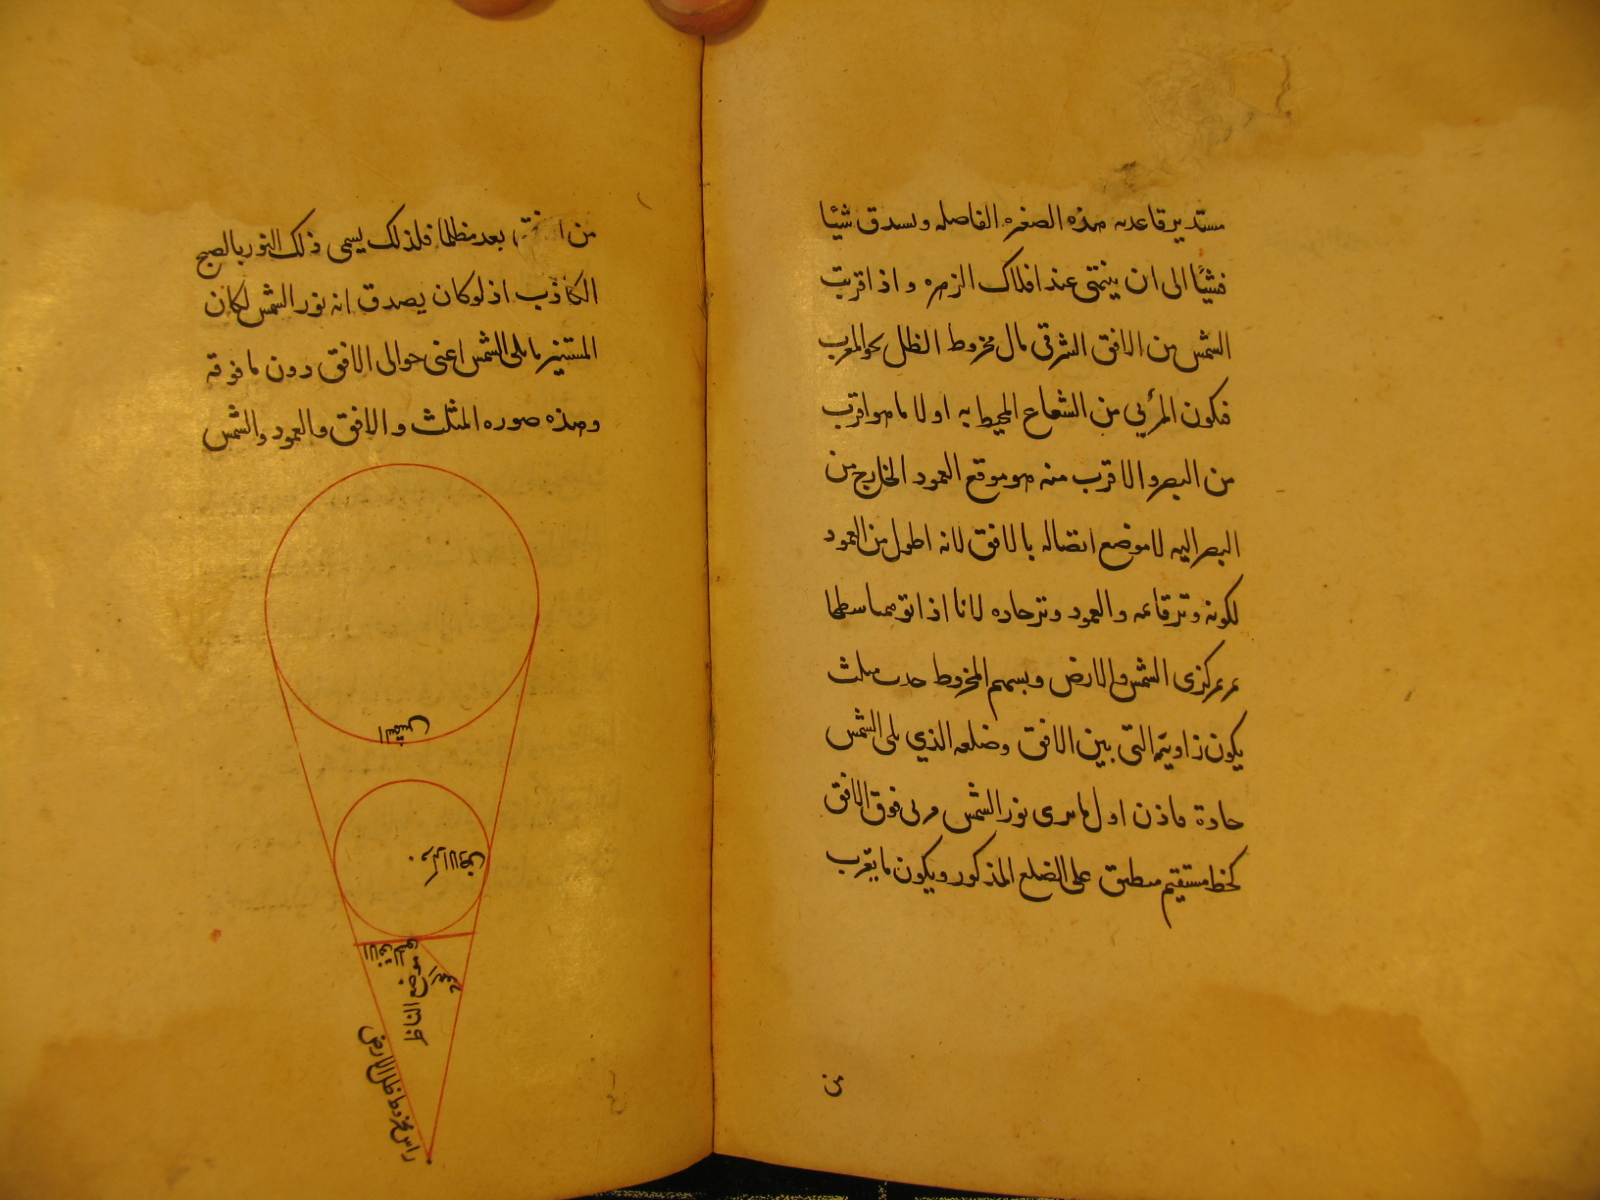 مستدير قاعدته هذه الصغيره الفاصله ويستدق شيئا
فشيئا الى ان ينتهى عند افلاك الزهره واذا قربت
الشمس من الافق الشرقى مال مخروط الظل نحو المغرب
فيكون المرئي من الشعاع المحيط به اولا ما هو اقرب
من البصر والاقرب منه هو موقع العمود الخارج من
البصر اليه لا موضع اتصاله بالافق لانه اطول من العمود
لكونه وتر قائمه والعمود وتر حاده لانا اذا توهمنا سطحا
يمر بمركزى الشمس والارض وبسهم المخروط حدث مثلث
يكون زاويته التى بين الافق وضلعه الذي يلى الشمس
حادة فاذن اول ما يرى نور الشمس يرى فوق الافق
كخط مستقيم منطبق على الضلع المذكور ويكون ما يقرب
من
من الافق بعد مظلما فلذلك يسمى ذلك النور بالصبح
الكاذب اذ لو كان يصدق انه نور الشمس لكان
المستنير ما يلى الشمس اعنى حوالى الافق دون ما فوقه
وهذه صوره المثلث والافق والعمود والشمس
الشمس
مركز الارض
الافق
موضع الناظر
راس مخروط ظل الارض